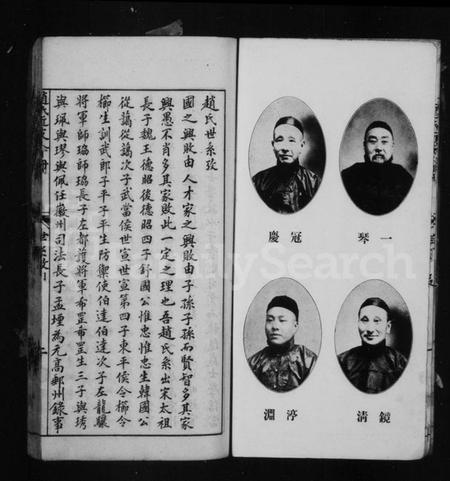 趙氏世系攷
國之興敗由人才家之興敗由子孫子孫而賢智多其家
興愚不肖多其家敗此一定之理也吾趙氏系出宋太祖
長子魏王德昭後德昭四子舒國公惟忠惟忠生韓國公
從藹從藹次子武當侯世宣世宣第四子東平侯令櫛令
櫛生訓武郎子平子平生防禦使伯達伯達次子左龍驤
將軍師瑙師瑙長子左都護將軍希罟希罟生三子與琇
與珮與璆與佩任徽州司法長子孟堙為元高郵州錄事
冠慶
一琴
淳淵
鏡清
FamilySearch